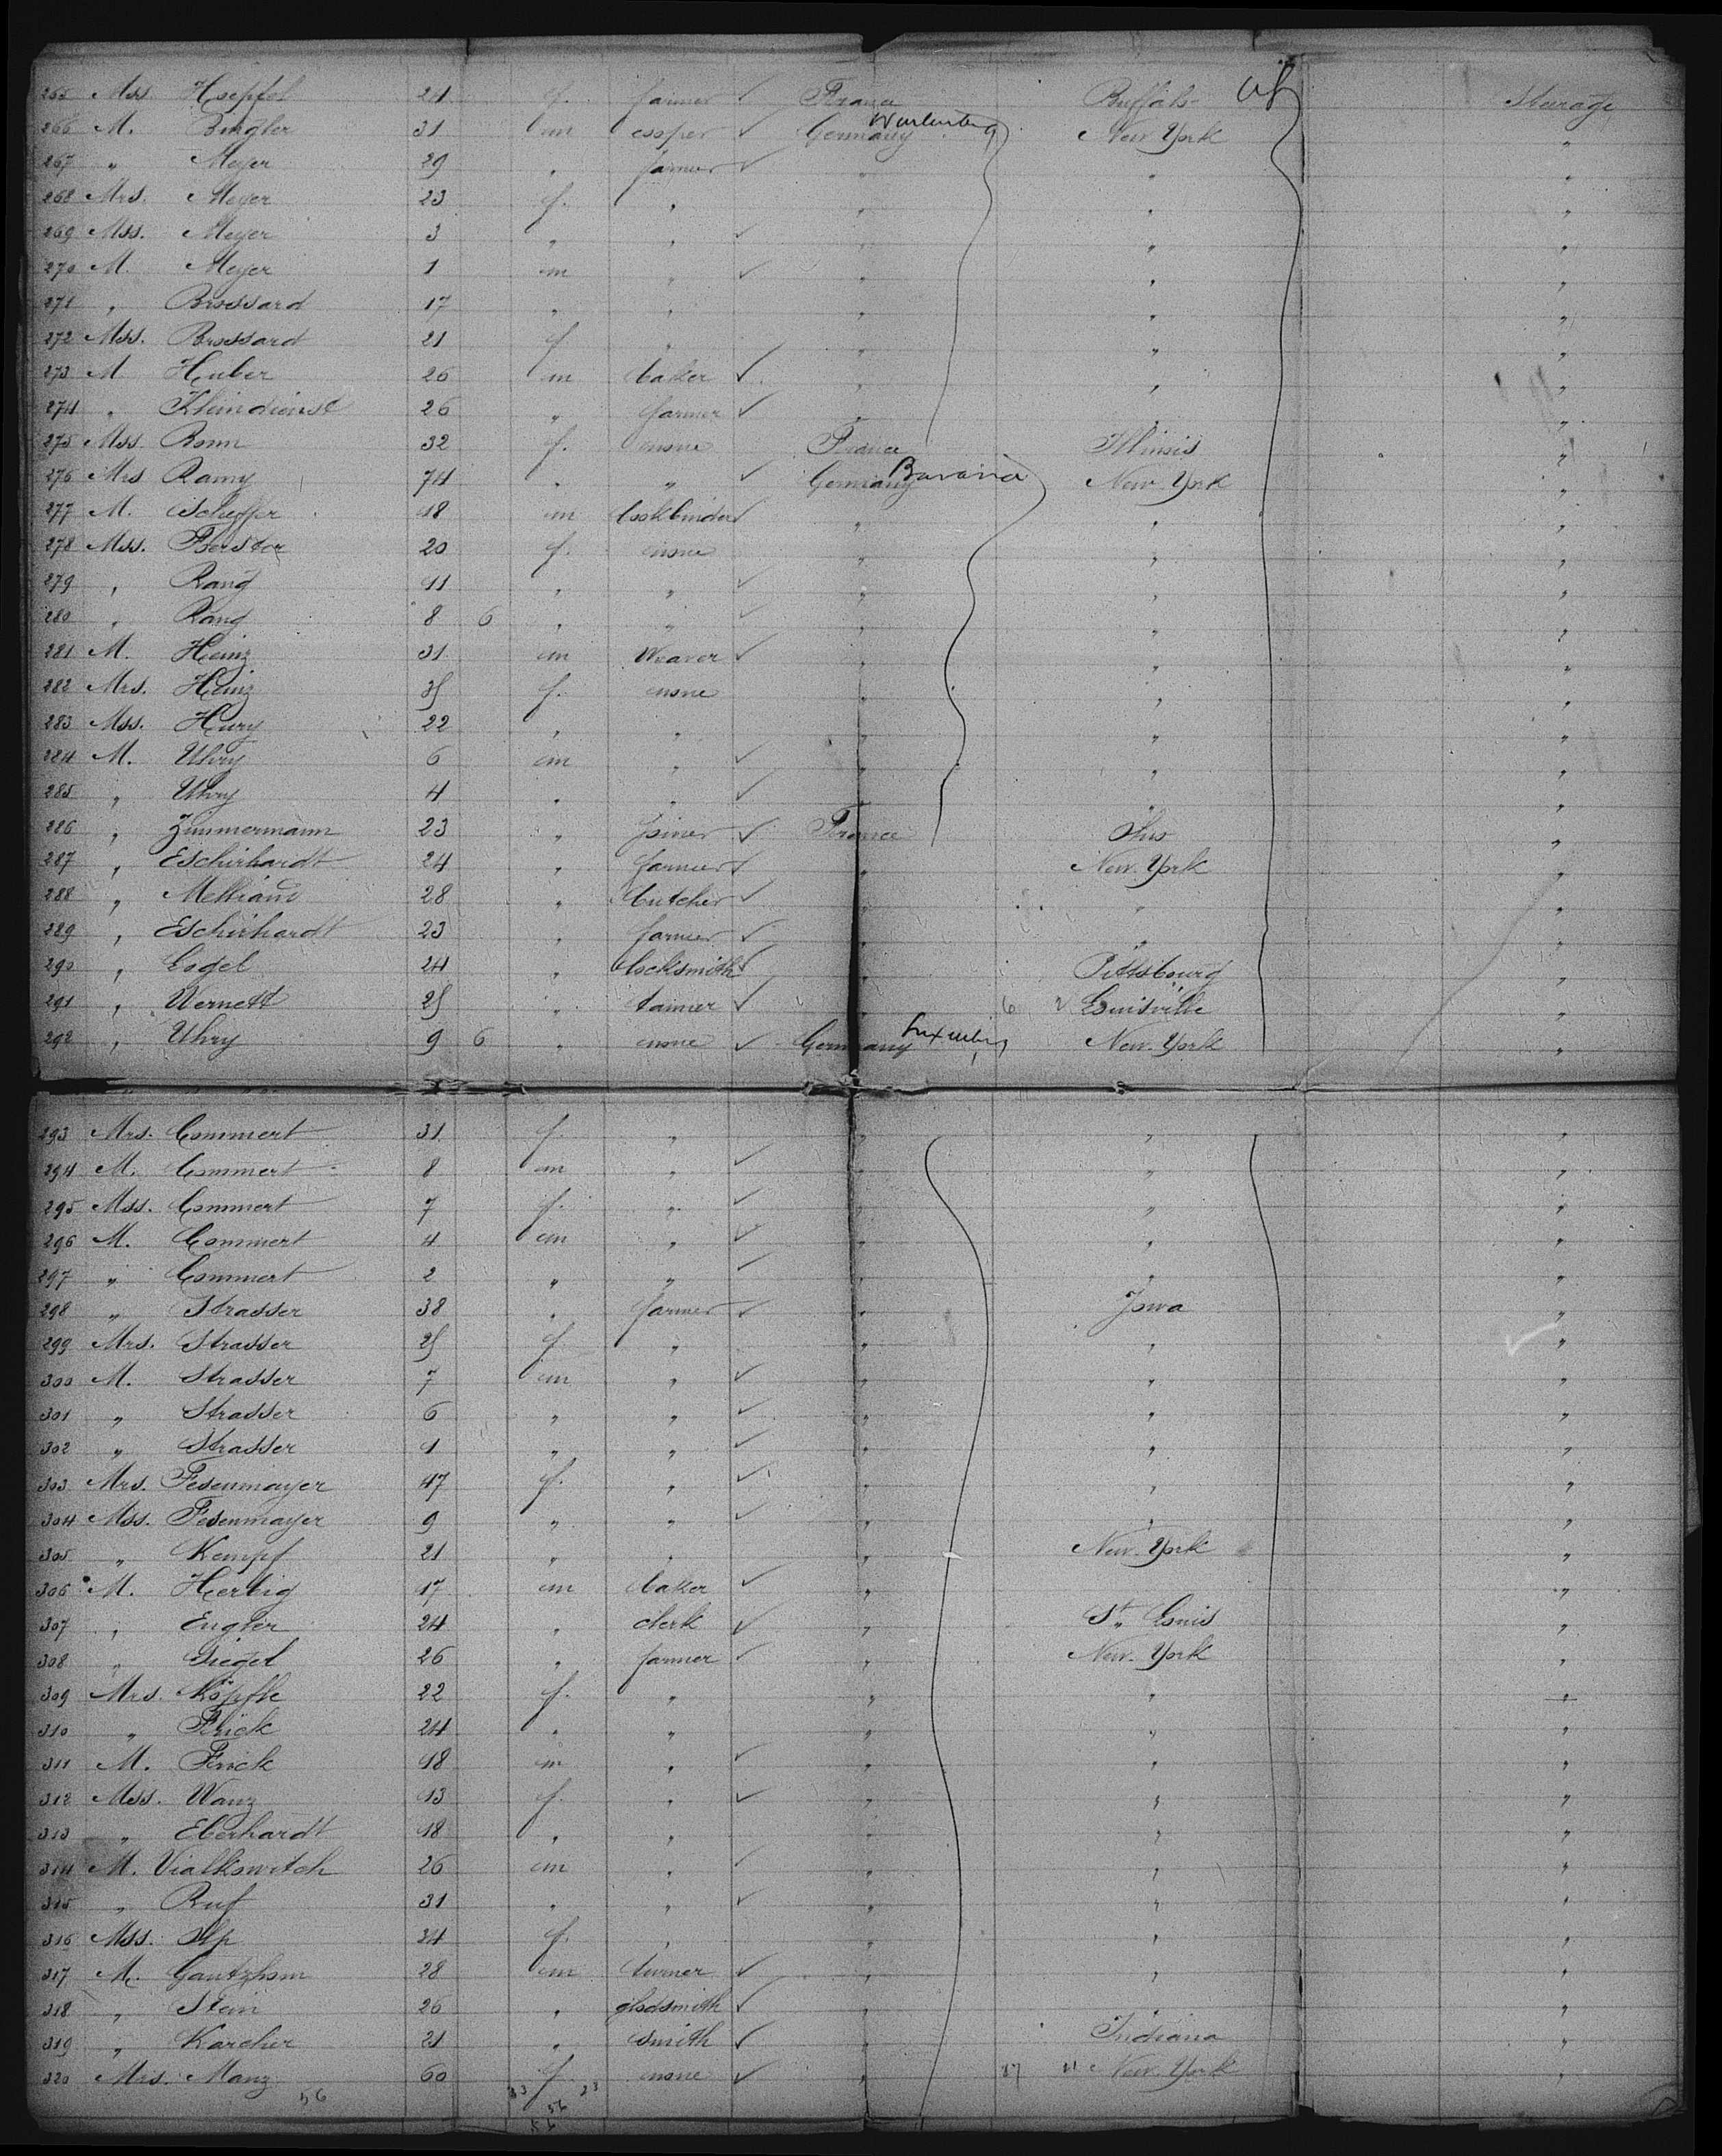 265 Mss. Hoepfel 21 f. farmer ✓ France Buffalo Steerage
266 M. Bingler 31 m cooper ✓ Germany Wurtenberg New York "
267 " Meyer 29 " farmer ✓ " " "
268 Mrs. Meyer 23 f. " " " "
269 Mss. Meyer 3 " " ✓ " " "
270 M. Meyer 1 m " ✓ " " "
271 " Brossard 17 " " " " "
272 Mss. Brossard 21 f " " " "
273 M Huber 26 m baker ✓ " " "
274 " Kleindienst 26 " farmer ✓ " " "
275 Mss. Ronn 32 f. none France Illinois "
276 Mrs Ramy 74 " " ✓ Germany Bavaria New York "
277 M. Scheffer 18 m bookbinder ✓ " " "
278 Mss. Foerster 20 f. none " " "
279 " Rang 11 " " ✓ " " "
280 " Rang 8 6 " " ✓ " " "
281 M. Heinz 31 m Weaver ✓ " " "
282 Mrs. Heinz 25 f. none " " "
283 Mss. Hury 22 " " " " "
284 M. Uhry 6 m " ✓ " " "
285 " Uhry 4 " " ✓ " " "
286 " Zimmermann 23 " joiner ✓ France Ohio "
287 " Eschirhardt 24 " farmer ✓ " New York "
288 " 28 " butcher ✓ " " "
289 " Eschirhardt 23 " farmer ✓ " " "
290 " Engel 24 " locksmith ✓ " Pittsbourg "
291 " Wernett 25 " tanner ✓ " 6 2 Louisville "
292 " Uhry 9 6 " none ✓ Germany Luxemburg New York "
293 Mrs. Commert 31 f. " " " "
294 M. Commert 8 m " ✓ " " "
295 Mss. Commert 7 f. " ✓ " " "
296 M. Commert 4 m " ✓ " " "
297 " Commert 2 " " ✓ " " "
298 " Strasser 38 " farmer ✓ " Iowa "
299 Mrs. Strasser 25 f. " " " "
300 M. Strasser 7 m " ✓ " " "
301 " Strasser 6 " " ✓ " " "
302 " Strasser 1 " " ✓ " " "
303 Mrs. Fesenmayer 47 f. " ✓ " " "
304 Mss. Fesenmayer 9 " " ✓ " " "
305 " Kempf 21 " " " New York "
306 M. Hertig 17 m baker ✓ " "
307 " Engler 24 " clerk ✓ " St. Louis "
308 " Siegel 26 " farmer ✓ " New York "
309 Mrs. Köpfle 22 f. " " " "
310 " Frick 24 " " " " "
311 M. Frick 18 m " ✓ " " "
312 Mss. Wanz 13 f. " ✓ " " "
313 " Eberhardt 18 " " " " "
314 M. Vialkowitch 26 m " ✓ " " "
315 " Ruf 31 " " ✓ " " "
316 Mss. Alp 24 f. " " " "
317 M. Gantzhom 28 m turner ✓ " " "
318 " Stein 26 " glodsmith ✓ " " "
319 " Karcher 21 " smith ✓ " Indiana "
320 Mrs. Manz 60 f. none ✓ " 17 11 New York "
56 33 23
56
56